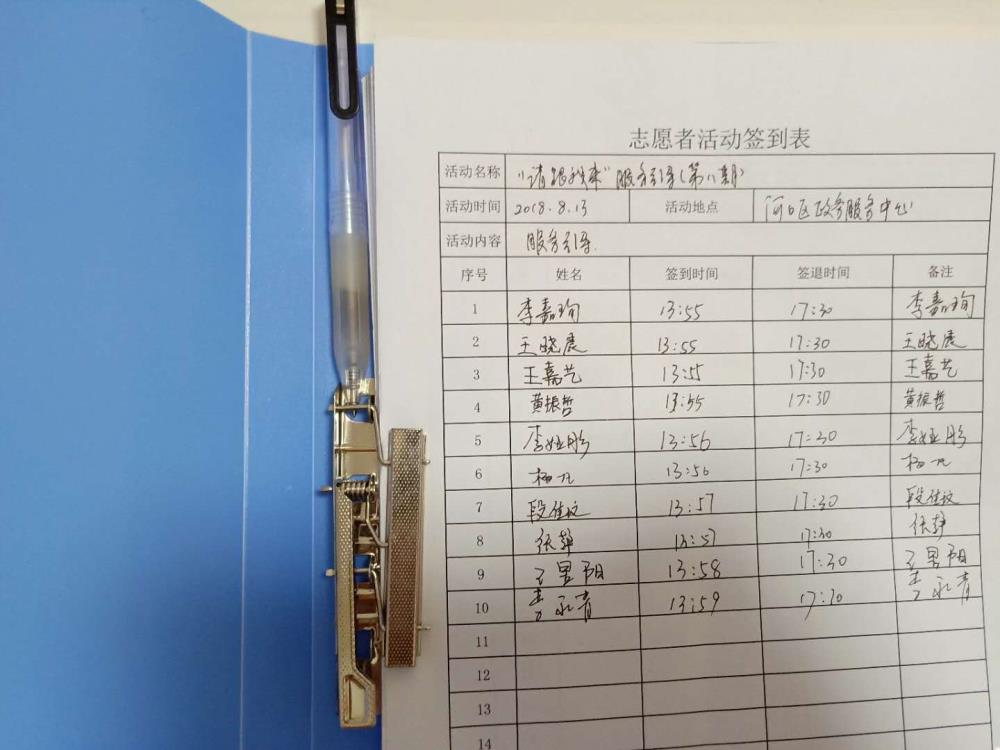 志愿者活动签到表
活动名称 "请跟我来"服务引导(第八期)
活动时间 2018.8.13 活动地点 河口区政务服务中心
活动内容 服务引导
序号 姓名 签到时间 签退时间 备注
1 李嘉珣 13:55 17:30 李嘉珣
2 王晓晨 13:55 17:30 王晓晨
3 王嘉艺 13:55 17:30 王嘉艺
4 黄振哲 13:55 17:30 黄振哲
5 李娅彤 13:56 17:30 李娅彤
6 杨凡 13:56 17:30 杨凡
7 段佳汶 13:57 17:30 段佳汶
8 张静 13:57 17:30 张静
9 王昱阳 13:58 17:30 王昱阳
10 李永青 13:59 17:30 李永青
11
12
13
14